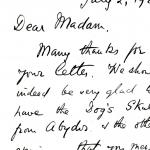 July 2, 19
Dear Madam.
Many thanks for
your letter. We shou
indeed be very glad t
have the Dog's Sku
from Abydos & the othe
that you men